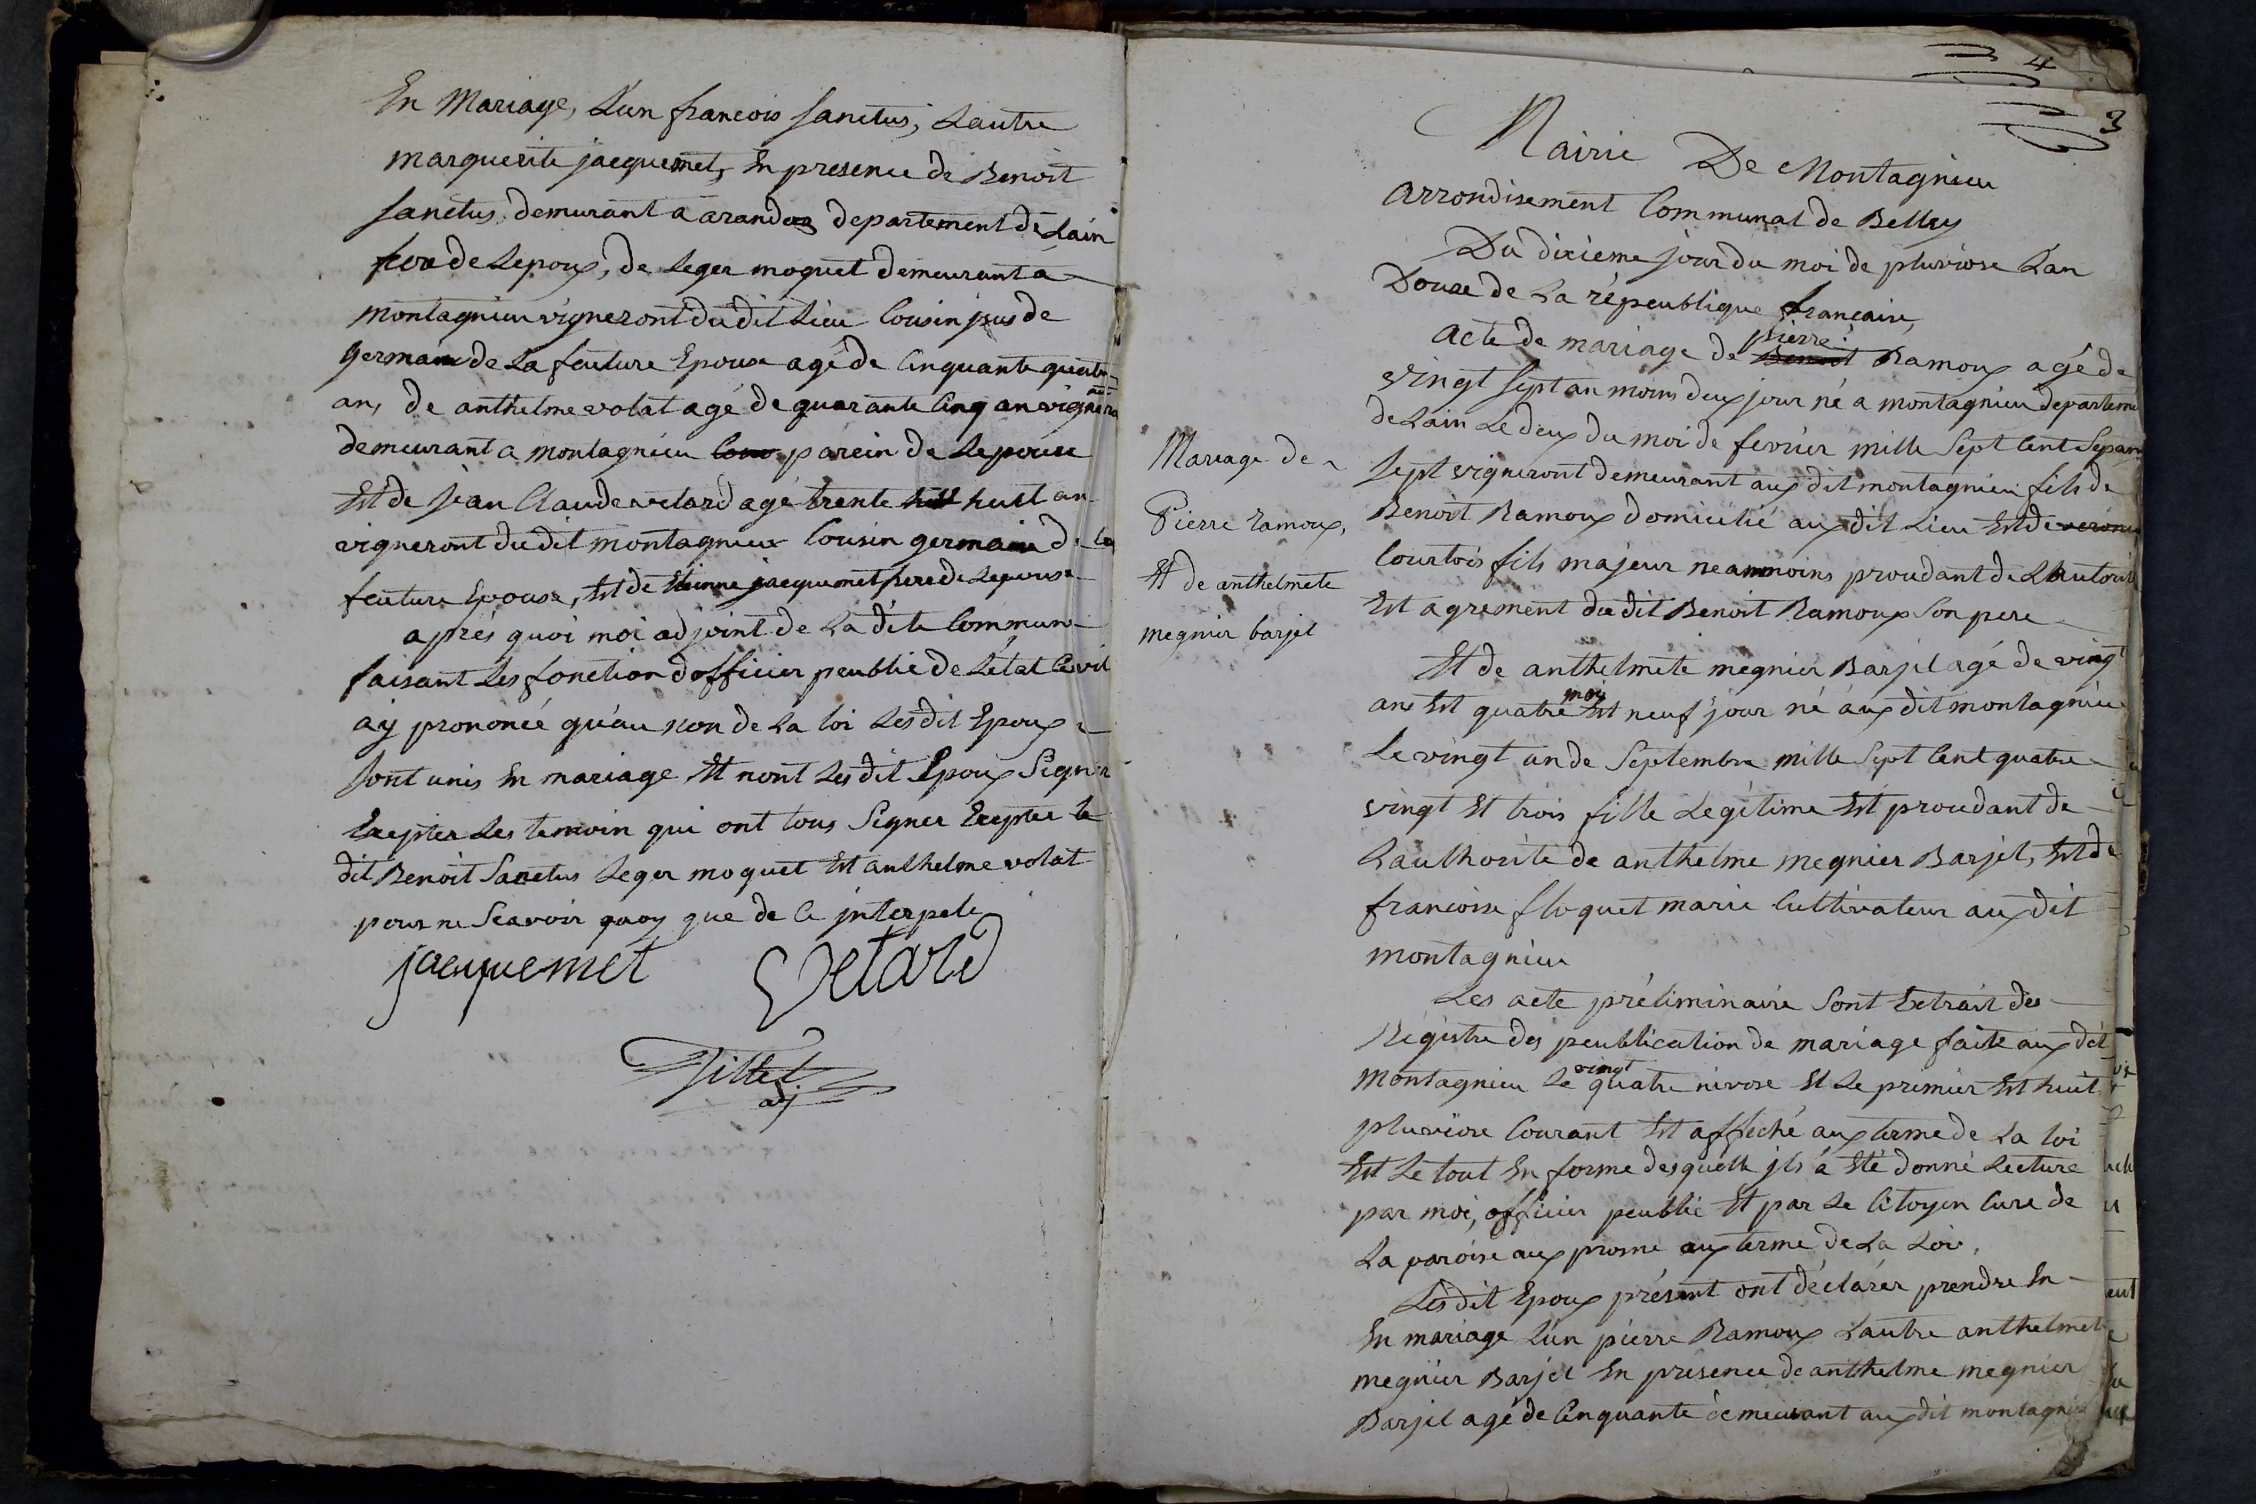 En Mariage, L'un francois Sanctus, Lautre
marguerite jacquemet, En presence de Benoit
Sanctus demurant a arandas departement de Lain
frere de Lepoux, de Leger moquet demeurant a
montagnieu vigneront du dit Lieu Cousin jsus de
germain de La feuture Epouse agé de Cinquante quatre
an, de anthelme volat agé de quarante Cinq an vigneron
demeurant a montagnieu parein de Lepouse
Est de jean Claude velard agé trente huit an
vigneront du dit montagnieux Cousin germain de la
feuture Epouse, Est de Etienne jacquemet pere de Lepouse
aprés quoi moi adjoint de La dite Commune
faisant Les fonction dofficier peublic de Létat Civil
aÿ prononcé qu'au non de La loi Les dit Epoux
Sont unis En mariage Et nont Les dit Epoux Signer
Excepter Les temoin qui ont tous Signer Excepter le
dit Benoit Sanctus Leger moquet Est anthelme volat
pour ne Scavoir quoy que de Ce jnterpele
jacquemet Velard
Tillet
adj
4
3
Mairie De Montagnieu
arrondisement Communal de Belley
Du dixieme jour du moi de pluviose Lan
Douze de La républeublique francaise,
pierre
acte de mariage de Benoit Ramoux agé de
vingt Sept an moins deux jour né a montagnieu departeme
de Lain Le deux du moi de fevrier mille Sept Cent Sepan
Sept vigneront demeurant aux dit montagnieu fils de
Benoit Ramoux domicilié aux dit Lieu Est de veronic
Courtois fils majeur neanmoins proudant de L'autorit
Est agrement du dit Benoit Ramoux Son pere
Mariage de
Pierre ramoux,
Et de anthelmete
megnier barjel
Et de anthelmete megnier Barjel agé de vingt
moy
ans Est quatre Est neuf jour né aux dit montagnieu
Le vingt un de Septembre mille Sept Cent quatre
vingt Et trois fille Legitime Est proudant de
L'authorité de anthelme megnier Barjel, Est de
francoise floquet marie Cultivateur aux dit
montagnieu
Les acte préliminaire Sont Extrait des
Régistre des peublication de mariage faite aux dit
vingt
montagnieu Le quatre nivose Et Le premier Est huit
pluviose Courant Est affiché aux terme de La loi
Est Le tout En forme desquelle jls a Eté donné Lecture
par moi, officier peublic Et par Le Citoyen Cure de
La paroise aux prosne aux terme de La Loi,
Les dit Epoux présent ont déclarér prendre En
En mariage L'un pierre Ramoux Lautre anthelmete
megnier Barjel En presence de anthelme megnier
Barjel agé de Cinquante demeurant aux dit montagnieu